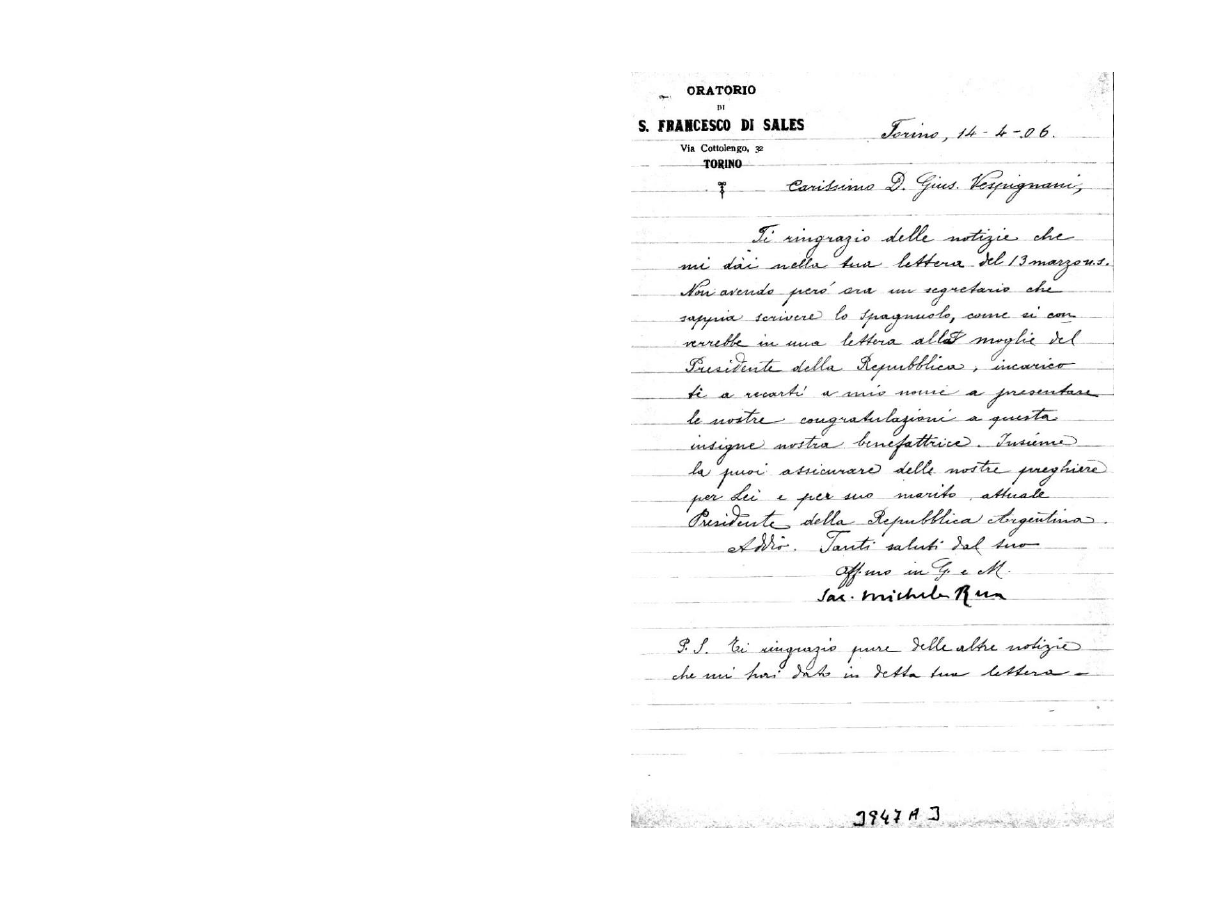 ORATORIO
DI
S. FRANCESCO DI SALES
Via Cottolengo, 32
TORINO
Torino, 14-4-06.
Carissimo D. Gius. Vespignani,
Ti ringrazio delle notizie che
mi dài nella tua lettera del 13 marzo u.s.
Non avendo però ora un segretario che
sappia scrivere lo spagnuolo, come si con
verrebbe in una lettera alla moglie del
Presidente della Repubblica, incarico
te a recarti a mio nome a presentare
le nostre congratulazioni a questa
insigne nostra benefattrice. Insieme
la puoi assicurare delle nostre preghiere
per Lei e per suo marito attuale
Presidente della Repubblica Argentina.
Addio. Tanti saluti dal tuo
aff.mo in G. e M.
Sac. Michele Rua
P.S. Ti ringrazio pure delle altre notizie
che mi hai dato in detta tua lettera -
3947 A 3